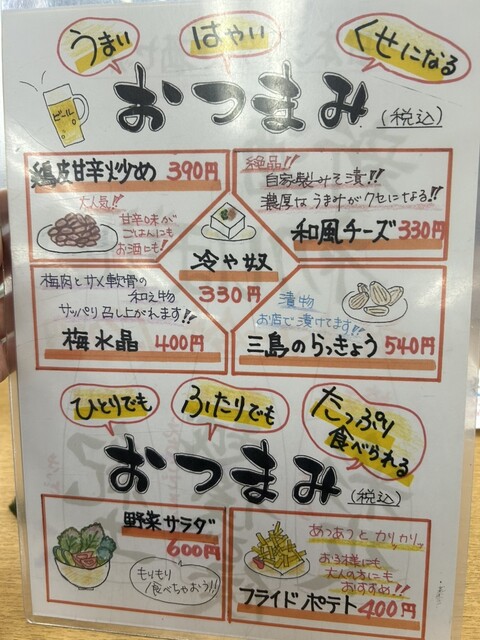 うまい
はやい
くせになる
ビール
おつまみ
(税込)
鶏皮甘辛炒め 390円
大人気!!
甘辛味が
ごはんにも
お酒にも!
絶品!!
自家製みそ漬!!
濃厚なうまみがクセになる!!
和風チーズ 330円
冷や奴
330円
梅肉とサメ軟骨の
和え物
サッパリ召し上がれます!!
梅水晶 400円
漬物
お店で漬けてます!!
三島のらっきょう 540円
ひとりでも
ふたりでも
たっぷり
食べられる
おつまみ
(税込)
野菜サラダ
600円
もりもり
食べちゃおう!!
あつあつとカリカリッ
お子様にも
大人の方にも
おすすめ!!
フライドポテト 400円